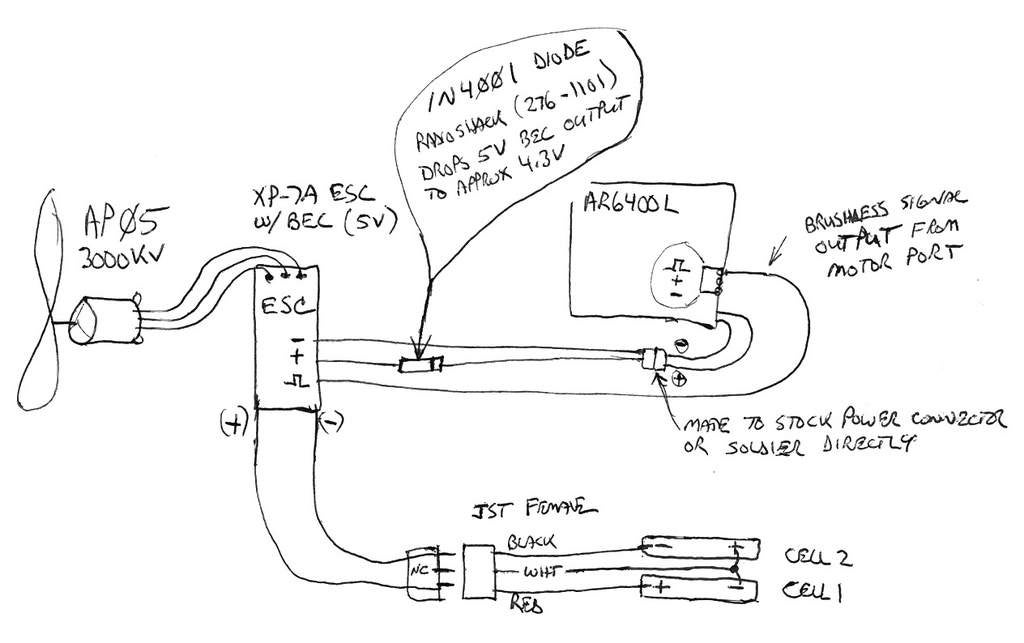 1N4001 DIODE
RADIOSHACK (276-1101)
DROPS 5V BEC OUTPUT
TO APPROX 4.3V
AP05
3000KV
XP-7A ESC
W/ BEC (5V)
ESC
-
+
(+)
(-)
AR6400L
+
-
BRUSHLESS SIGNAL
OUTPUT FROM
MOTOR PORT
-
+
MATE TO STOCK POWER CONNECTOR
OR SOLDIER DIRECTLY
JST FEMALE
NC
BLACK
WHT
RED
- +
+ -
CELL 2
CELL 1